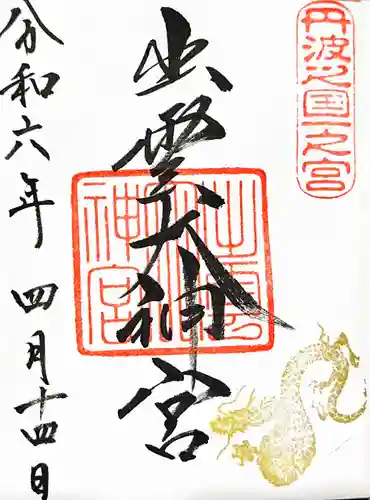 丹波之国一之宮
出雲大神宮
出雲大神宮
令和六年四月十四日